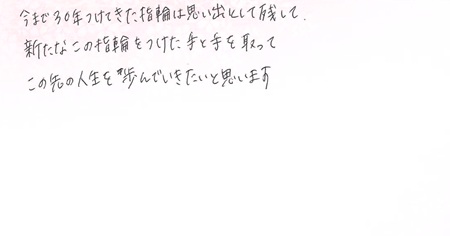 今まで30年つけてきた指輪は思い出として残して、
新たなこの指輪をつけた手と手を取って
この先の人生を歩んでいきたいと思います